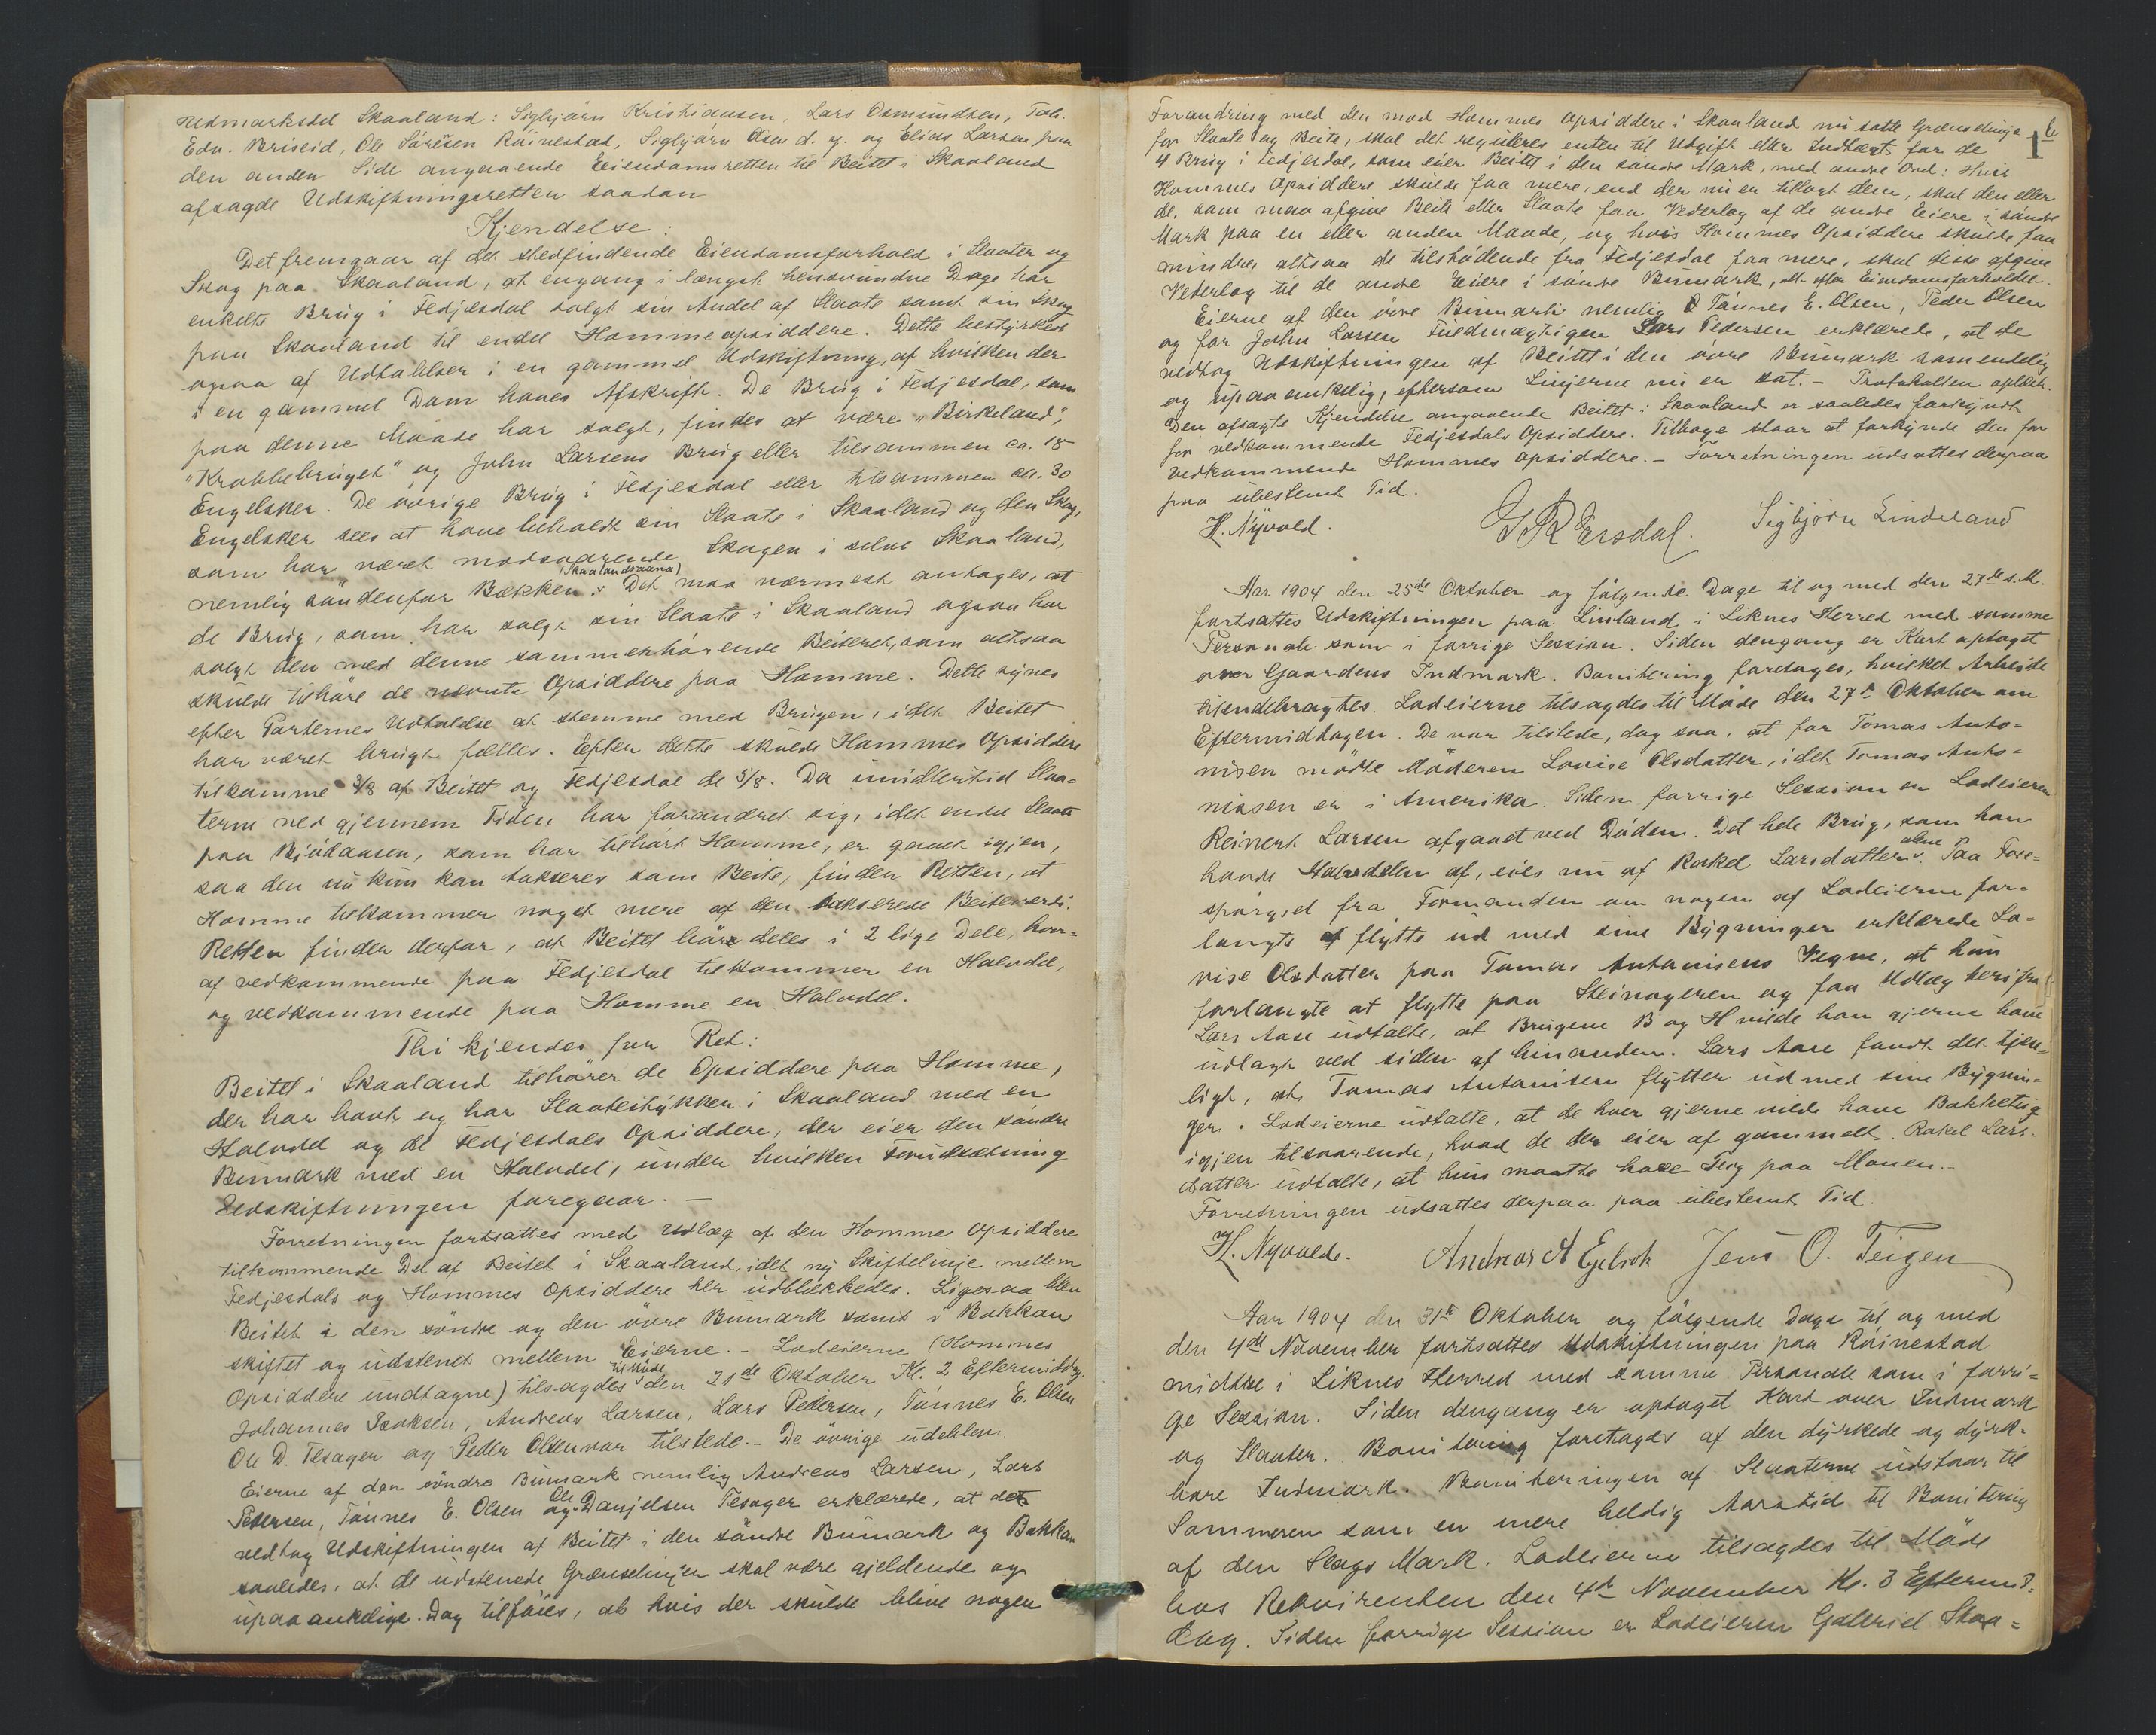 udmarksdel Skaaland: Sigbjørn Kristiansen, Lars Osmundsen, Tob.
Edv. Briseid, Ole Sørësen Röinestad, Sigbjørn Olsen d. y. og Elias Larsen paa
den anden Side angaaende Eiendomsretten til Beitet i Skaaland
afsagde Udskiftningsretten saadan
Kjendelse:
Det fremgaar af det stedfindende Eiendomsforhold i Slaater og
Skog paa Skaaland, at engang i længst hensvundne Dage har
enkelte Brug i Fedjesdal solgt sin Andel af Slaate samt sin Skog
paa Skaaland til endel Hommeopsiddere. Dette bestyrkes
ogsaa af Udtalelser i en gammel Udskiftning, af hvilken der
i en gammel Dom haves Afskrift. De Brug i Fedjesdal, som
paa denne Maade har solgt, findes at være "Birkeland",
"Krabbebruget" og John Larsens Brug eller tilsammen ca. 18
Engelsker. De övrige Brug i Fedjesdal eller tilsammen ca. 30
Engelsker sees at have beholdt sin Slaate i Skaaland og den Skog,
som har været modsvarende Skogen i selve Skaaland,
nemlig søndenfor Bækken (Skaalandsaana). Det maa nærmest antages, at
de Brug, som har solgt sin Slaate i Skaaland ogsaa har
solgt den med denne sammenhörende Beiteret, som altsaa
skulde tilhöre de nævnte Opsiddere paa Homme. Dette synes
efter Parternes Udtalelse at stemme med Brugen, idet Beitet
har været brugt fælles. Efter dette skulde Hommes Opsiddere
tilkomme 3/8 af Beitet og Fedjesdal de 5/8. Da imidlertid Slaa-
terne ved gjennem Tiden har forandret sig, idet endel Slaate
paa Bjödaasen, som har tilhört Homme, er groet igjen,
saa den nu kun kan takseres som Beite, finder Retten, at
Homme tilkommer noget mere af den takserede Beiteværdi.
Retten finder derfor, at Beitet bör deles i 2 lige Dele, hvor-
af vedkommende paa Fedjesdal tilkommer en Halvdel,
og vedkommende paa Homme en Halvdel.
Thi kjendes for Ret:
Beitet i Skaaland tilhörer de Opsiddere paa Homme,
der har havt og har Slaatestykker i Skaaland med en
Halvdel og de Fedjesdals Opsiddere, der eier den söndre
Bumark med en Halvdel, under hvilken Forudsætning
Udskiftningen foregaar. —
Forretningen fortsattes med Udlæg af den Homme Opsiddere
tilkommende Del af Beitet i Skaaland, idet ny Skiftelinje mellem
Fedjesdals og Hommes Opsiddere blev udblekkedes. Ligesaa blev
Beitet i den söndre og den övre Bumark samt i Bakkan
skiftet og udstenet mellem Eierne. – Lodeierne (Hommes
Opsiddere undtagne) tilsagdes til Möde den 21de Oktober Kl. 2 Eftermiddag.
Johannes Isaksen, Andreas Larsen, Lars Pedersen, Tönnes E. Olsen
Ole D. Tesager og Peder Olsen var tilstede. – De övrige udeblev.
Eierne af den söndre Bumark nemlig Andreas Larsen, Lars
Pedersen, Tönnes E. Olsen og Ole Danjelsen Tesager erklærede, at de
vedtog Udskiftningen af Beitet i den söndre Bumark og Bakkan
saaledes, at de udstenede Grænselinjer skal være gjeldende og
upaaankelige. Dog tilföies, at hvis der skulde blive nogen
Forandring med den mod Hommes Opsiddere i Skaaland nu satte Grænselinje
for Slaate og Beite, skal det reguleres enten til Udgift eller Indtægt for de
4 Brug i Fedjesdal, som eier Beitet i den söndre Mark, med andre Ord: Hvis
Hommes Opsiddere skulde faa mere, end der nu er tillagt dem, skal den eller
de, som maa afgive Beite eller Slaate faa Vederlag af de andre Eiere i söndre
Mark paa en eller anden Maade, og hvis Hommes Opsiddere skulde faa
mindre, altsaa de tilstödende fra Fedjesdal faa mere, skal disse afgive
Vederlag til de andre Eiere i söndre Bumark, alt efter Eiendomsforholdet.
Eierne af den övre Bumark nemlig Tönnes E. Olsen, Peder Olsen
og for John Larsen Fuldmægtigen Lars Pedersen erklærede, at de
vedtog Udskiftningen af Beitet i den övre Bumark som endelig
og upaaankelig, eftersom Linjerne nu er sat. – Protokollen oplæst.
Den afsagte Kjendelse angaaende Beitet i Skaaland er saaledes forkyndt
for vedkommende Fedjesdals Opsiddere. Tilbage staar at forkynde den for
vedkommende Hommes Opsiddere. – Forretningen udsattes derpaa
paa ubestemt Tid.
H. Nyvold. G R Ersdal. Sigbjörn Lindeland
Aar 1904 den 25de Oktober og fölgende Dage til og med den 27de s. M.
fortsattes Udskiftningen paa Linland i Liknes Herred med samme
Personale som i forrige Session. Siden dengang er Kart optaget
over Gaardens Indmark. Bonitering foretoges, hvilket Arbeide
tilendebragtes. Lodeierne tilsagdes til Möde den 27de Oktober om
Eftermiddagen. De var tilstede, dog saa, at for Tomas Anto-
nisen mödte Moderen Lovise Olsdatter, idet Tomas Anto-
nisen er i Amerika. Siden forrige Session er Lodeieren
Reinert Larsen afgaaet ved Döden. Det hele Brug, som han
havde Halvdelen af, eies nu af Rakel Larsdatter alene. Paa Fore-
spörgsel fra Formanden om nogen af Lodeierne for-
langte at flytte ud med sine Bygninger erklærede Lo-
vise Olsdatter paa Tomas Antonisens Vegne, at hun
forlangte at flytte paa Steinageren og faa Udlæg herifra
Lars Aase udtalte, at Brugene B og H vilde han gjerne have
udlagt ved siden af hinanden. Lars Aase fandt det tjen-
ligt, at Tomas Antonisen flytter ud med sine Bygnin-
ger. Lodeierne udtalte, at de hver gjerne vilde have Bakketeig
igjen tilsvarende, hvad de der eier af gammelt. Rakel Lars-
datter udtalte, at hun maatte have Teig paa Monen. –
Forretningen udsattes derpaa paa ubestemt Tid.
H. Nyvold. Andreas A Egelock Jens O. Teigen
Aar 1904 den 31te Oktober og fölgende Dage til og med
den 4de November fortsattes Udskiftningen paa Röinestad
midtre i Liknes Herred med samme Personale som i forri-
ge Session. Siden dengang er optaget Kart over Indmark
og Slaater. Bonitering foretoges af den dyrkede og dyrk-
bare Indmark. Boniteringen af Slaaterne udstaar til
Sommeren som en mere heldig Aarstid til Bonitering
af den Slags Mark. Lodeierne tilsagdes til Möde
hos Rekvirenten den 4de November Kl. 3 Eftermid-
dag. Siden forrige Session er Lodeieren Gabriel Skaa-